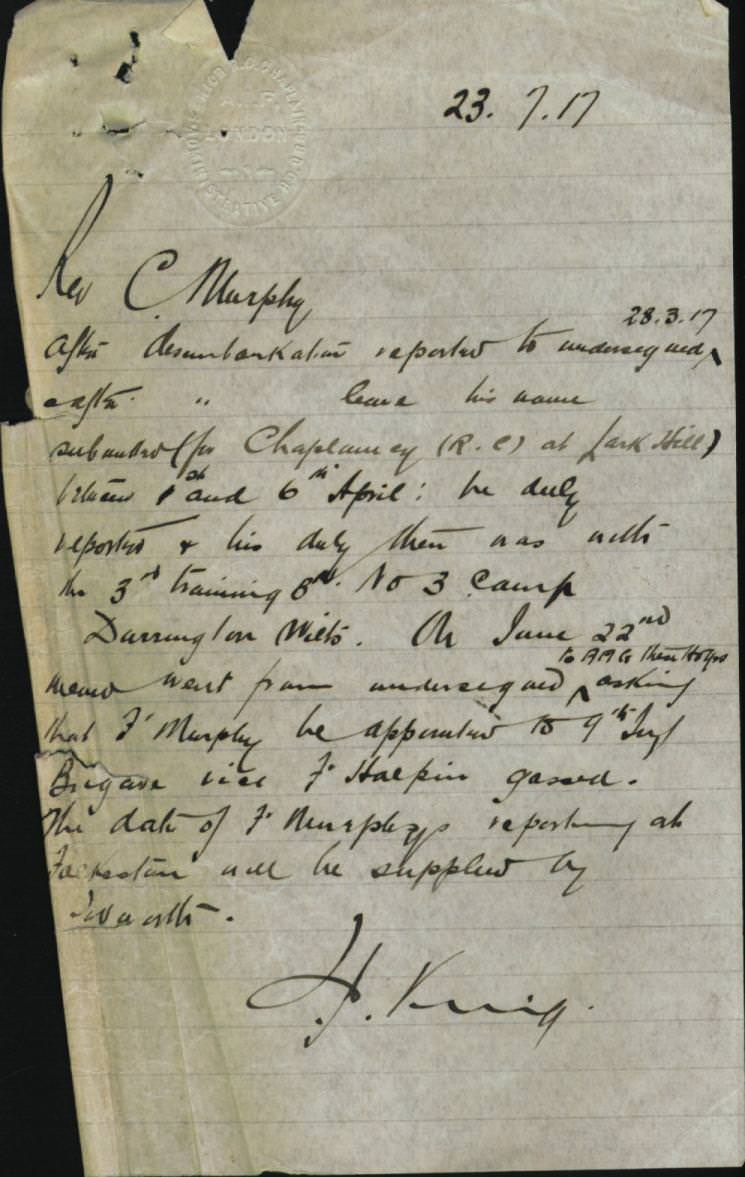 LONDON
23.7.17
Rev C. Murphy
28.3.17
after disembarkation reported to undersigned
after " leave his name
submitted (for Chaplaincy (R.C) at Lark Hill)
between 1st and 6th April: he duly
reported & his duty then was with
the 3rd training Bn. No 3 Camp
Durrington Wilts. On June 22nd
to AAG then Hdqrs
memo went from undersigned asking
that Fr Murphy be appointed to 9th Inf
Brigade vice Fr Halpin gassed.
The date of Fr Murphys reporting at
Folkestone will be supplied by
Tidworth.